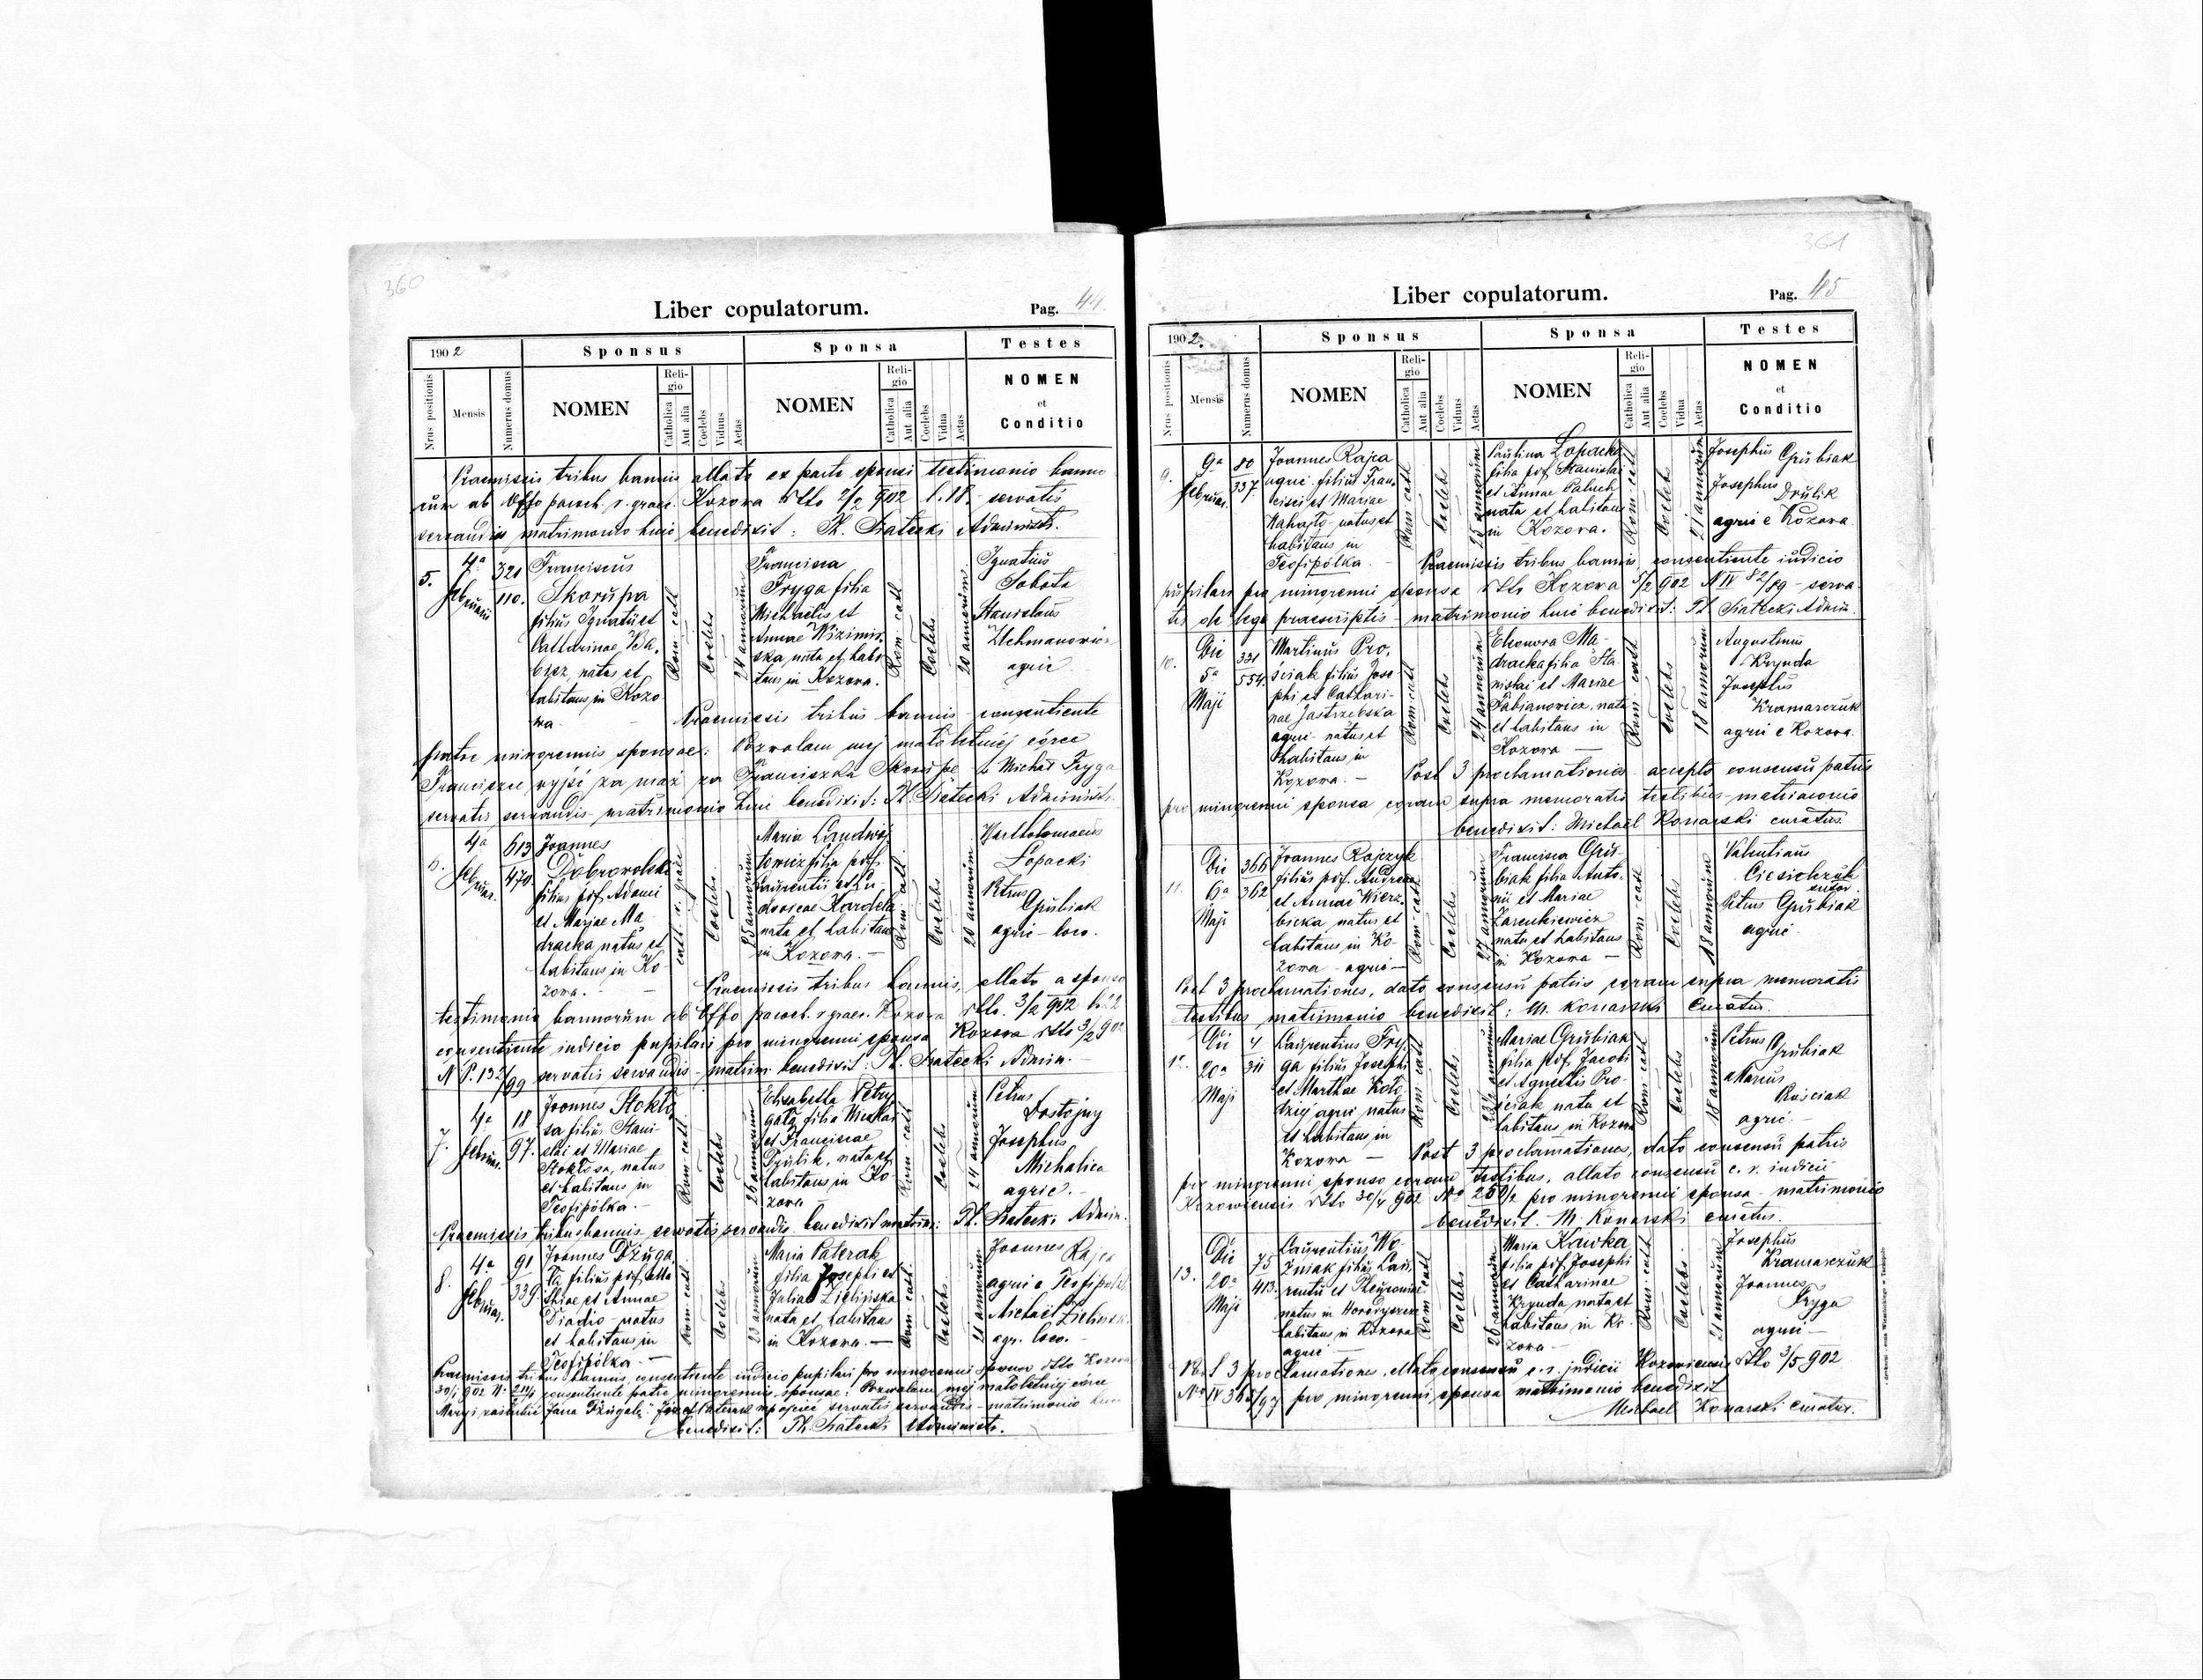 360
Liber copulatorum.
Pag. 44.
1902
Sponsus
Sponsa
Testes
Nrus positionis
Mensis
Numerus domus
NOMEN
Religio
Catholica
Aut alia
Coelebs
Viduus
Aetas
NOMEN
Religio
Catholica
Aut alia
Coelebs
Vidua
Aetas
NOMEN
et
Conditio
Praemissis tribus bannis allato ex parte sponsi testimonio banno
rum ab Offo paroch. r. graec. Kozova dtto 2/2 902 l. 18. servatis
servandis matrimonio huic benedixit: Administr.
5.
4a
Februarii
321
110.
Franciscus
Skorupa
filius Ignatii et
Catharinae
natus et
habitans in Kozo
wa.
Rom. cath
Coelebs
24 annorum
Francisca
Fryga filia
Michaelis et
Annae
nata et habi
tans in Kozova.
Rom. cath
Coelebs
20 annorum
Ignatius
Sobota
Stanislaus
Uchmanowicz
agric
Praemissis tribus bannis consentiente
patre minorennis sponsae: Pozwalam mej małoletniej córce
Franciszce wyjść za mąż za Franciszka Skorupę Michał Fryga
servatis servandis matrimonio huic benedixit: Administr.
6.
4a
Februar.
613
470.
Joannes
Dobrovolski
filius p.def. Adami
et Maryae Ma-
dracka natus et
habitans in Ko-
zova.
cath. r. graec
Coelebs
25 annorum
Maria
filia pdef.
Laurentii et Lu-
dovicae
nata et habitans
in Kozova.
Rom. cath.
Coelebs
20 annorum
Bartholomaeus
Łopacki
Petrus
Grubiak
agric - loco.
Praemissis tribus bannis, allato a sponso
testimonio bannorum ab Offo paroch. r. graec. Kozova dtto. 3/2 902 l. 22
consentiente iudicio pupilari pro minorenni sponsa Kozova dtto 3/2 902
N P. 132/99 servatis servandis - matrim. benedixit: Admin.
7.
4a
Februar.
18
97.
Joannes Stokło
sa filius Stani-
slai et Mariae
Stokłosa, natus
et habitans in
Teofipólka.
Rom. cath
Coelebs
26 annorum
Elisabetha Petry
filia Nicolai
et Franciscae
Drulik, nata et
habitans in Ko-
zova
Rom. cath
Coelebs
24 annorum
Petrus
Dostojny
Josephus
Michalica
agric.
Praemissis tribus bannis servatis servandis benedixit matrim: Admin.
8.
4a
Februar.
91
339.
Joannes Dżuga
ła filius pdef. Mat
thiae et Annae
Diadio natus
et habitans in
Teofipólka.
Rom. cath.
Coelebs
23 annorum
Maria Paterak
filia Josephi et
Juliae Zielińska
nata et habitans
in Kozova.
Rom. cath.
Coelebs
21 annorum
Joannes Rajca
agric e Teofipólka
Michaël Zieliński
agr. loco.
Praemissis tribus bannis, consentiente iudicio pupilari pro minorenni sponso dtto Kozova
30/1 902 consentiente patre minorennis sponsae: Pozwalam mej małoletniej córce
Maryi zaślubić Jana Dżugałę: servatis servandis - matrimonio huic
benedixit: Administr.
361
Liber copulatorum.
Pag. 45
1902.
Sponsus
Sponsa
Testes
Nrus positionis
Mensis
Numerus domus
NOMEN
Religio
Catholica
Aut alia
Coelebs
Viduus
Aetas
NOMEN
Religio
Catholica
Aut alia
Coelebs
Vidua
Aetas
NOMEN
et
Conditio
9.
9a
Februar.
80
337.
Joannes Rajca
agric. filius Fran-
cisci et Mariae
natus et
habitans in
Teofipólka.
Rom. cath
Coelebs
25 annorum
Paulina Łopacka
filia pdef. Stanislai
et Annae Paluch
nata et habitans
in Kozova.
Rom. cath
Coelebs
21 annorum
Josephus Grubiak
Josephus
Drulik
agric e Kozova.
Praemissis tribus bannis, consentiente iudicio
pupilari pro minorenni sponsa dtto Kozova 5/2 902 N IV 82/89 - serva
tis de lege praescriptis - matrimonio huic benedixit: Admin.
10.
Die
5a
Maji
331
554.
Martinus Pro-
ściak filius Jose
phi et Cathari-
nae Jastrzebska
agric. natus et
habitans in
Kozova.
Rom. cath
Coelebs
24 annorum
Eleonora Ma-
dracka filia Sta-
nislai et Mariae
Fabjanowicz, nata
et habitans in
Kozova
Rom. cath
Coelebs
18 annorum
Augustinus
Krynda
Josephus
Kramarczuk
agric e Kozova.
Post 3 proclamationes accepto consensu patris
pro minorenni sponsa coram supra memoratis testibus - matrimonio
benedixit: Michaël Konarski curatus.
11.
Die
6a
Maji
366
362
Joannes Rajczyk
filius pdef. Andreae
et Annae Wierz-
bicka, natus et
habitans in Ko-
zova - agric
Rom. cath
Coelebs
27 annorum
Francisca Gru-
biak filia Anto-
nii et Mariae
Zarenkiewicz
nata et habitans
in Kozova
Rom. cath
Coelebs
18 annorum
Valentinus
sutor.
Petrus Grubiak
agric
Post 3 proclamationes, dato consensu patris coram supra memoratis
testibus matrimonio benedixit: M. Konarski Curatus.
12.
Die
20a
Maji
4
311
Laurentius Fry-
ga filius Josephi
et Marthae Koło
dziej agric natus
et habitans in
Kozova
Rom. cath
Coelebs
Mariae Grubiak
filia pdef. Jacobi
et Agnetis Pro-
ściak nata et
habitans in Kozova
Rom. cath
Coelebs
18 annorum
Petrus
Grubiak
Marcus
agric
Post 3 proclamationes, dato consensu patris
pro minorenni sponso coram testibus, allato consensu c. r. iudicii
Kozowiensis dtto 30/4 902 pro minorenni sponsa - matrimonio
benedixit. M. Konarski curatus.
13.
Die
20a
Maji
75
413.
Laurentius Wo-
źniak filius Lau-
rentii et
natus in
habitans in Kozova
agric
Rom. cath
Coelebs
26 annorum
Maria Kawka
filia pdef. Josephi
et Catharinae
Krynda nata et
habitans in Ko-
zova
Rom. cath
Coelebs
21 annorum
Josephus
Kramarczuk
Joannes
Fryga
agric
Post 3 proclamationes, allato consensu c. r. judicii Kozoviensis dtto 3/5 902
pro minorenni sponsa matrimonio benedixit
Michael Konarski curatus.